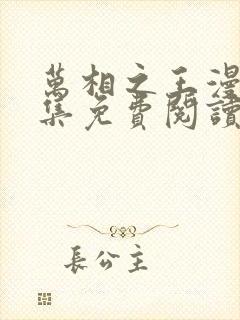 萬相之王漫
集免費閱讀
長公主